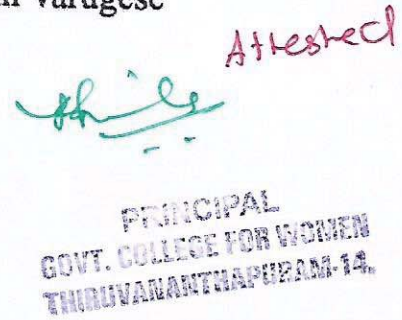 Varugese
Attested
PRINCIPAL
GOVT. COLLEGE FOR WOMEN
THIRUVANANTHAPURAM-14.